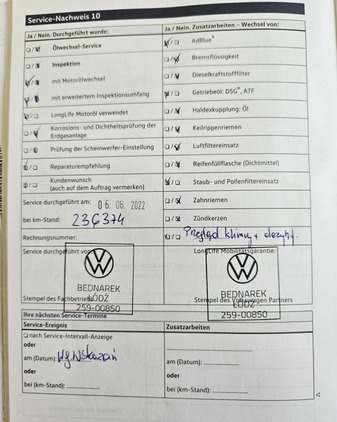 Service-Nachweis 10
Ja / Nein. Durchgeführt wurde:
Ölwechsel-Service
Inspektion
mit Motorölwechsel
mit erweitertem Inspektionsumfang
LongLife Motoröl verwendet
Korrosions- und Dichtheitsprüfung der Erdgasanlage
Prüfung der Scheinwerfer-Einstellung
Reparaturempfehlung
Kundenwunsch
(auch auf dem Auftrag vermerken)
Service durchgeführt am: 06. 06. 2022
bei km-Stand: 236374
Rechnungsnummer:
Service durchgeführt von:
BEDNAREK
ŁÓDŹ
259-00850
Stempel des Fachbetriebs
Ja / Nein. Zusatzarbeiten – Wechsel von:
AdBlue®
Bremsflüssigkeit
Dieselkraftstofffilter
Getriebeöl: DSG®, ATF
Haldexkupplung: Öl
Keilrippenriemen
Luftfiltereinsatz
Reifenfüllflasche (Dichtmittel)
Staub- und Pollenfiltereinsatz
Zahnriemen
Zündkerzen
Przegląd klimy +
LongLife Mobilitätsgarantie:
BEDNAREK
ŁÓDŹ
259-00850
Stempel des Volkswagen Partners
Ihre nächsten Service-Termine
Service-Ereignis
nach Service-Intervall-Anzeige
oder
am (Datum): Wg Wskazań
oder
bei (km-Stand):
Zusatzarbeiten
am (Datum):
oder
bei (km-Stand):